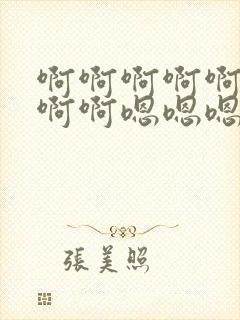 啊啊啊啊啊
啊啊嗯嗯嗯
張美照